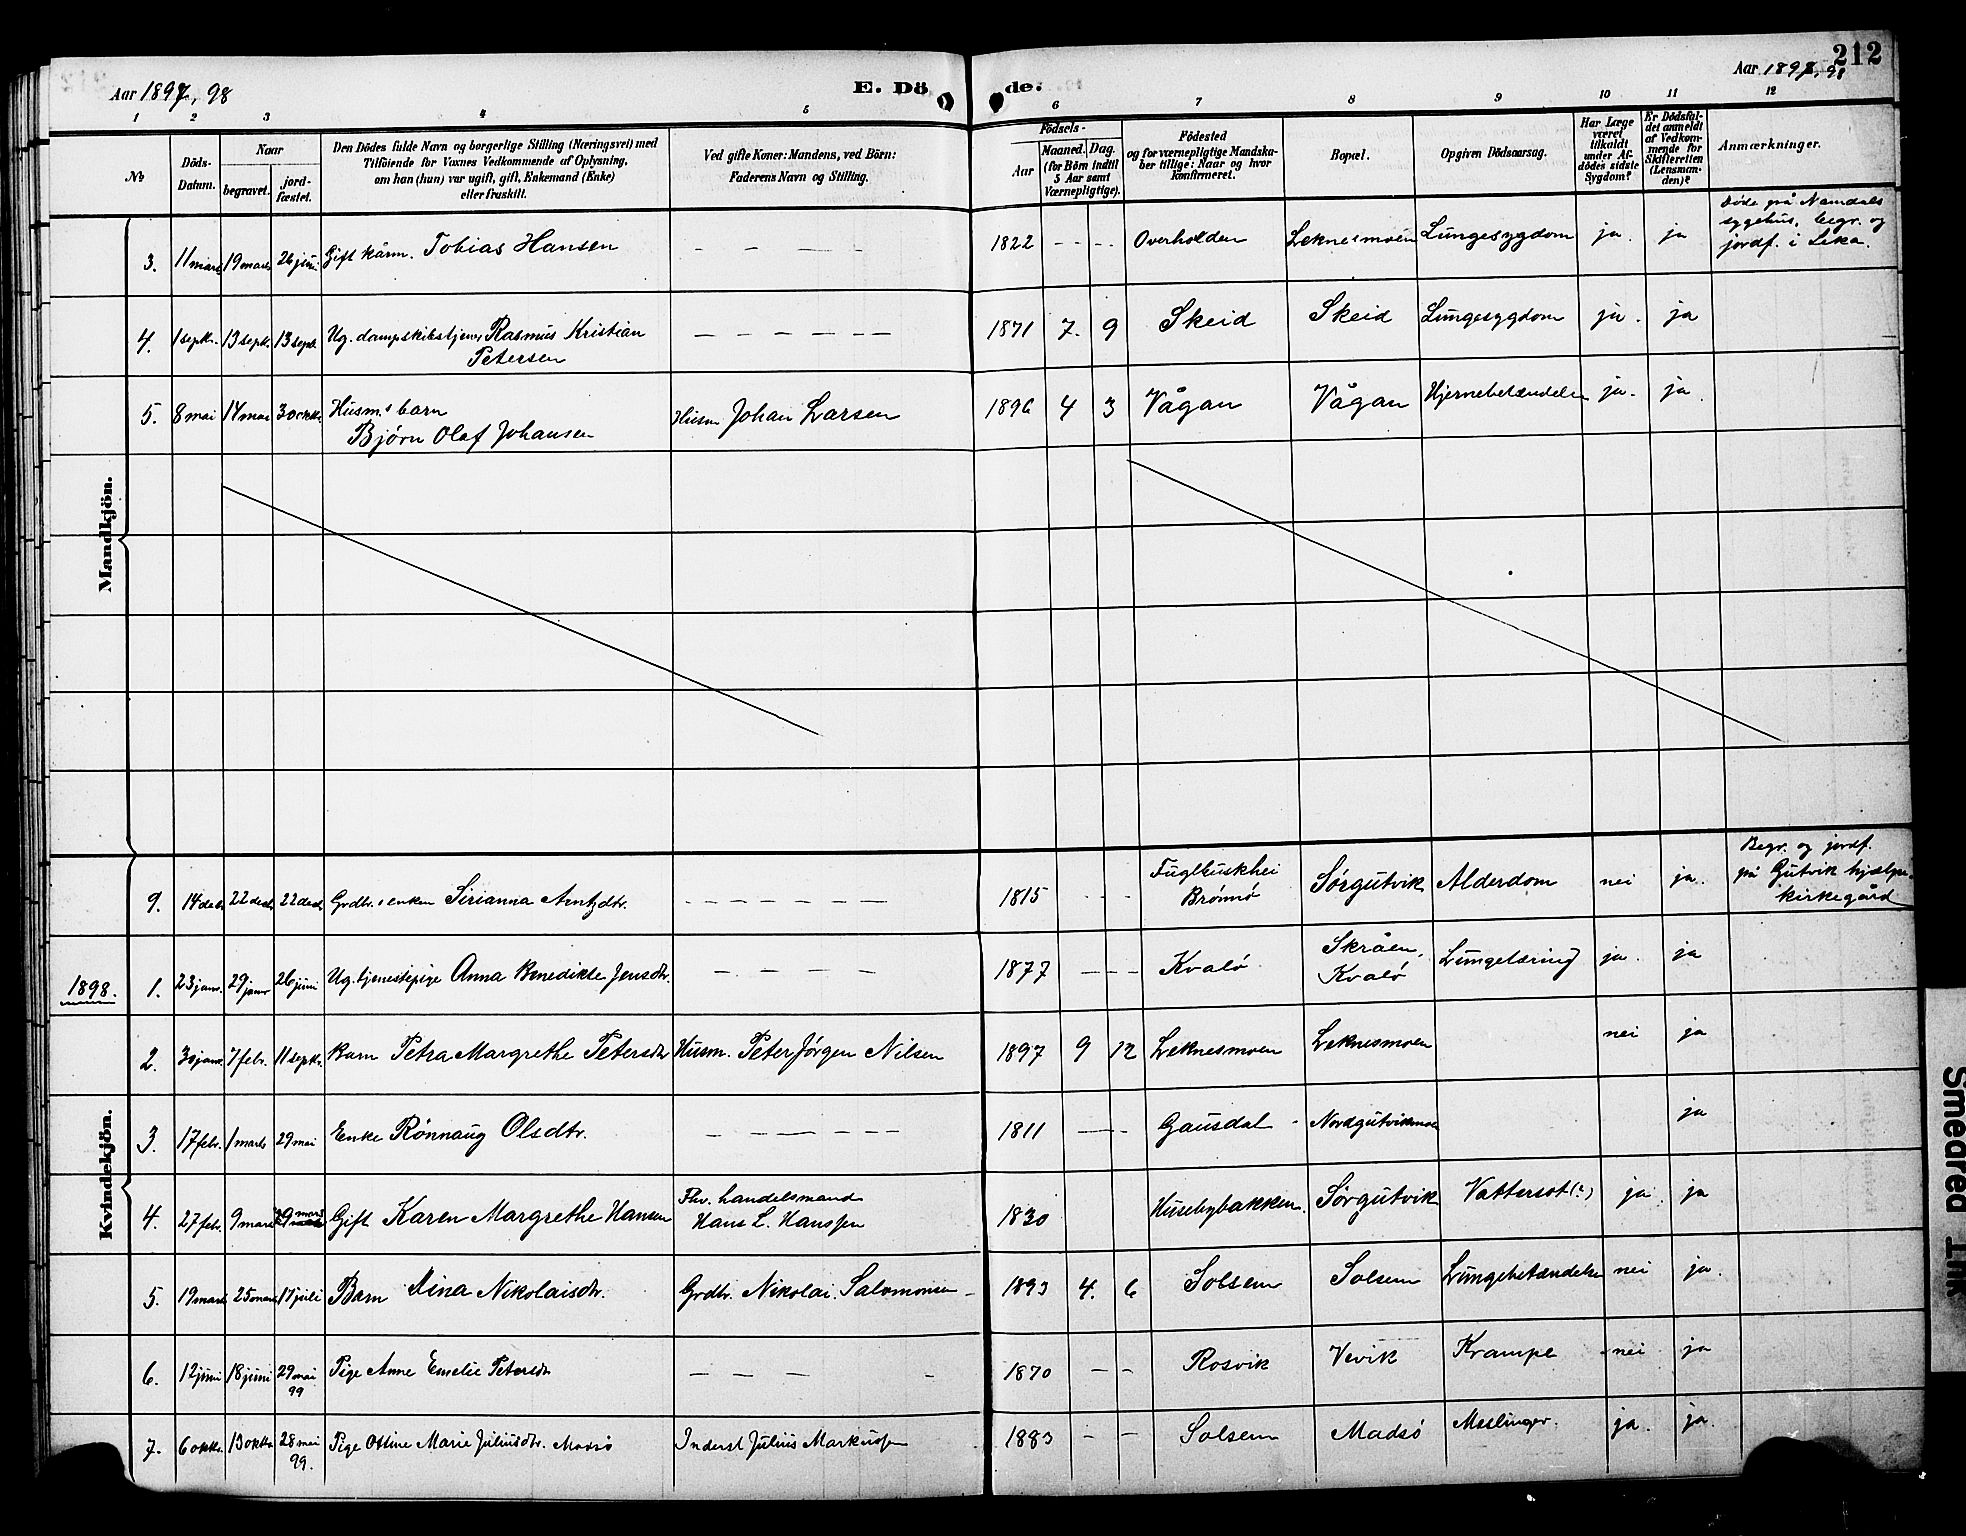 212
Aar 1897, 98
E. Dö
de.
Aar 1897, 98
1 2 3 4 5 6 7 8 9 10 11 12
№
Döds-
Datum.
Naar
begravet.
jord-
fæstet.
Den Dödes fulde Navn og borgerlige Stilling (Næringsvei) med
Tilföiende for Voxnes Vedkommende af Oplysning,
om han (hun) var ugift, gift, Enkemand (Enke)
eller fraskilt.
Ved gifte Koner: Mandens, ved Börn:
Faderens Navn og Stilling.
Födsels-
Aar
Maaned. Dag.
(for Börn indtil
5 Aar samt
Værnepligtige).
Födested
og for værnepligtige Mandska-
ber tillige: Naar og hvor
konfirmeret.
Bopæl.
Opgiven Dödsaarsag.
Har Læge
været
tilkaldt
under Af-
dödes sidste
Sygdom?
Er Dödsfal-
det anmeldt
af Vedkom-
mende for
Skifteretten
(Lensman-
den)?
Anmærkninger.
Mandkjön.
3. 11 mars 19 mars 26 juni Gift kårm. Tobias Hansen – – – – – 1822 – – – – Overhalden Leknesmoen Lungesygdom ja. ja Døde på Namdals
sygehus, begr. og
jordf. i Leka.
4. 1 septr. 13 septr. 13 septr. Ug. dampskibstjener Rasmus Kristian
Petersen – – – – – – 1871 7. 9 Skeid Skeid Lungesygdom ja. ja
5. 8 mai 14 mai 3 oktbr. Husm.s barn
Bjørn Olaf Johansen Husm Johan Larsen 1896 4 3 Vågan Vågan Hjernebetændelse ja. ja.
Kvindekjön.
9. 14 decbr 22 decbr 22 decbr Grdbr.s enken Sirianna Arntzdtr. – – – – – – – 1815 – – – Fuglbuskhei
Brønnø Sørgutvik Alderdom nei ja. Begr. og jordf.
på Gutvik hjælpe-
kirkegård
1898. 1. 23 janr. 29 janr 26 juni Ug. tjenestepige Anna Benedikte Jensdtr. – – – – – 1877 – – – Kvalø Skråen,
Kvalø Lungetæring ja. ja
2. 30 janr. 7 febr. 11 septr. Barn Petra Margrethe Petersdtr Husm. Peter Jørgen Nilsen 1897 9 12 Leknesmoen Leknesmoen nei ja
3. 17 febr. 1 marts 29 mai Enke Rønnaug Olsdtr. – – – – – – 1811 – – – Gausdal – Nordgutvikmoen ja
4. 27 febr. 9 mars 29 mars Gift Karen Margrethe Hansen Fhv. handelsmand
Hans L. Hanssen 1830 Husebybakken. Sørgutvik Vattersot (?) ja. ja
5. 19 mars 25 mars 17 juli Barn Mina Nikolaisdtr. Grdbr. Nikolai Salomonsen – 1893 4. 6 Solsem Solsem Lungebetændelse nei ja.
6. 12 juni 18 juni 29 mai
99 Pige Anne Emelie Petersdtr – – – – – 1870 – – Rosvik Vevik Krampe nei ja
7. 6 oktbr. 13 oktbr 28 mai
99. Pige Ottine Marie Juliusdtr. Madsø Inderst Julius Markussen 1883 – – Solsem Madsø Meslinger. ja. ja.
Smeared Ink